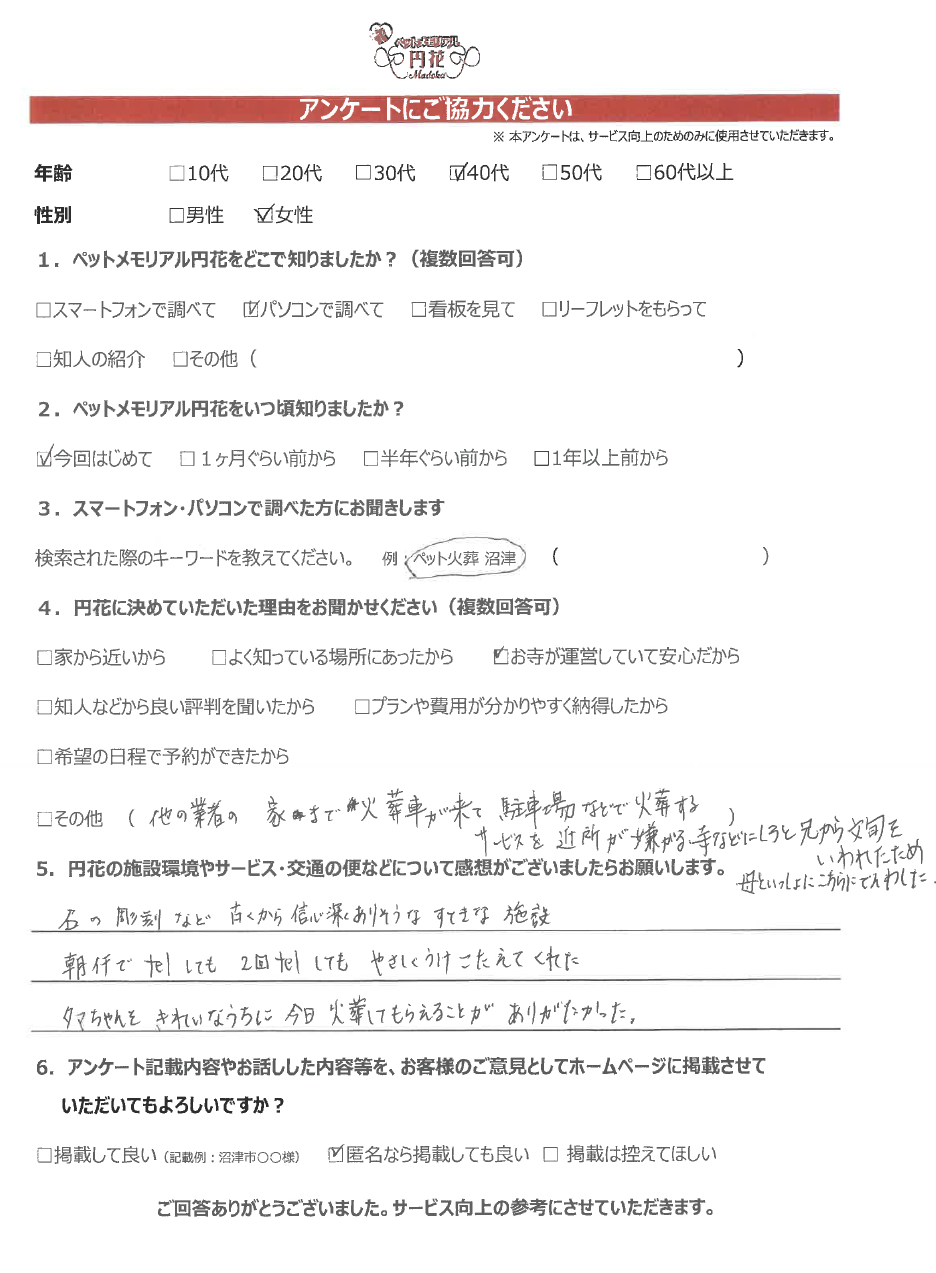 ペットメモリアル
円花
Madoka
アンケートにご協力ください
※ 本アンケートは、サービス向上のためのみに使用させていただきます。
年齢 □10代 □20代 □30代 ☑40代 □50代 □60代以上
性別 □男性 ☑女性
１．ペットメモリアル円花をどこで知りましたか？（複数回答可）
□スマートフォンで調べて ☑パソコンで調べて □看板を見て □リーフレットをもらって
□知人の紹介 □その他（ ）
２．ペットメモリアル円花をいつ頃知りましたか？
☑今回はじめて □１ヶ月ぐらい前から □半年ぐらい前から □1年以上前から
３．スマートフォン・パソコンで調べた方にお聞きします
検索された際のキーワードを教えてください。 例：ペット火葬 沼津 （ ）
４．円花に決めていただいた理由をお聞かせください（複数回答可）
□家から近いから □よく知っている場所にあったから ☑お寺が運営していて安心だから
□知人などから良い評判を聞いたから □プランや費用が分かりやすく納得したから
□希望の日程で予約ができたから
□その他 （ 他の業者の 家まで 火葬車が来て 駐車場などで火葬する ）
サービスを 近所が嫌がる、寺などにしろと兄から文句を
いわれたため
母といっしょにこちらにでんわした。
５．円花の施設環境やサービス・交通の便などについて感想がございましたらお願いします。
石の彫刻など 古くから信心深くありそうな すてきな 施設
朝イチで telしても 2回telしても やさしくうけこたえてくれた
タマちゃんを きれいなうちに 今日 火葬してもらえることが ありがたかった。
６．アンケート記載内容やお話しした内容等を、お客様のご意見としてホームページに掲載させて
いただいてもよろしいですか？
□掲載して良い（記載例：沼津市〇〇様） ☑匿名なら掲載しても良い □ 掲載は控えてほしい
ご回答ありがとうございました。サービス向上の参考にさせていただきます。